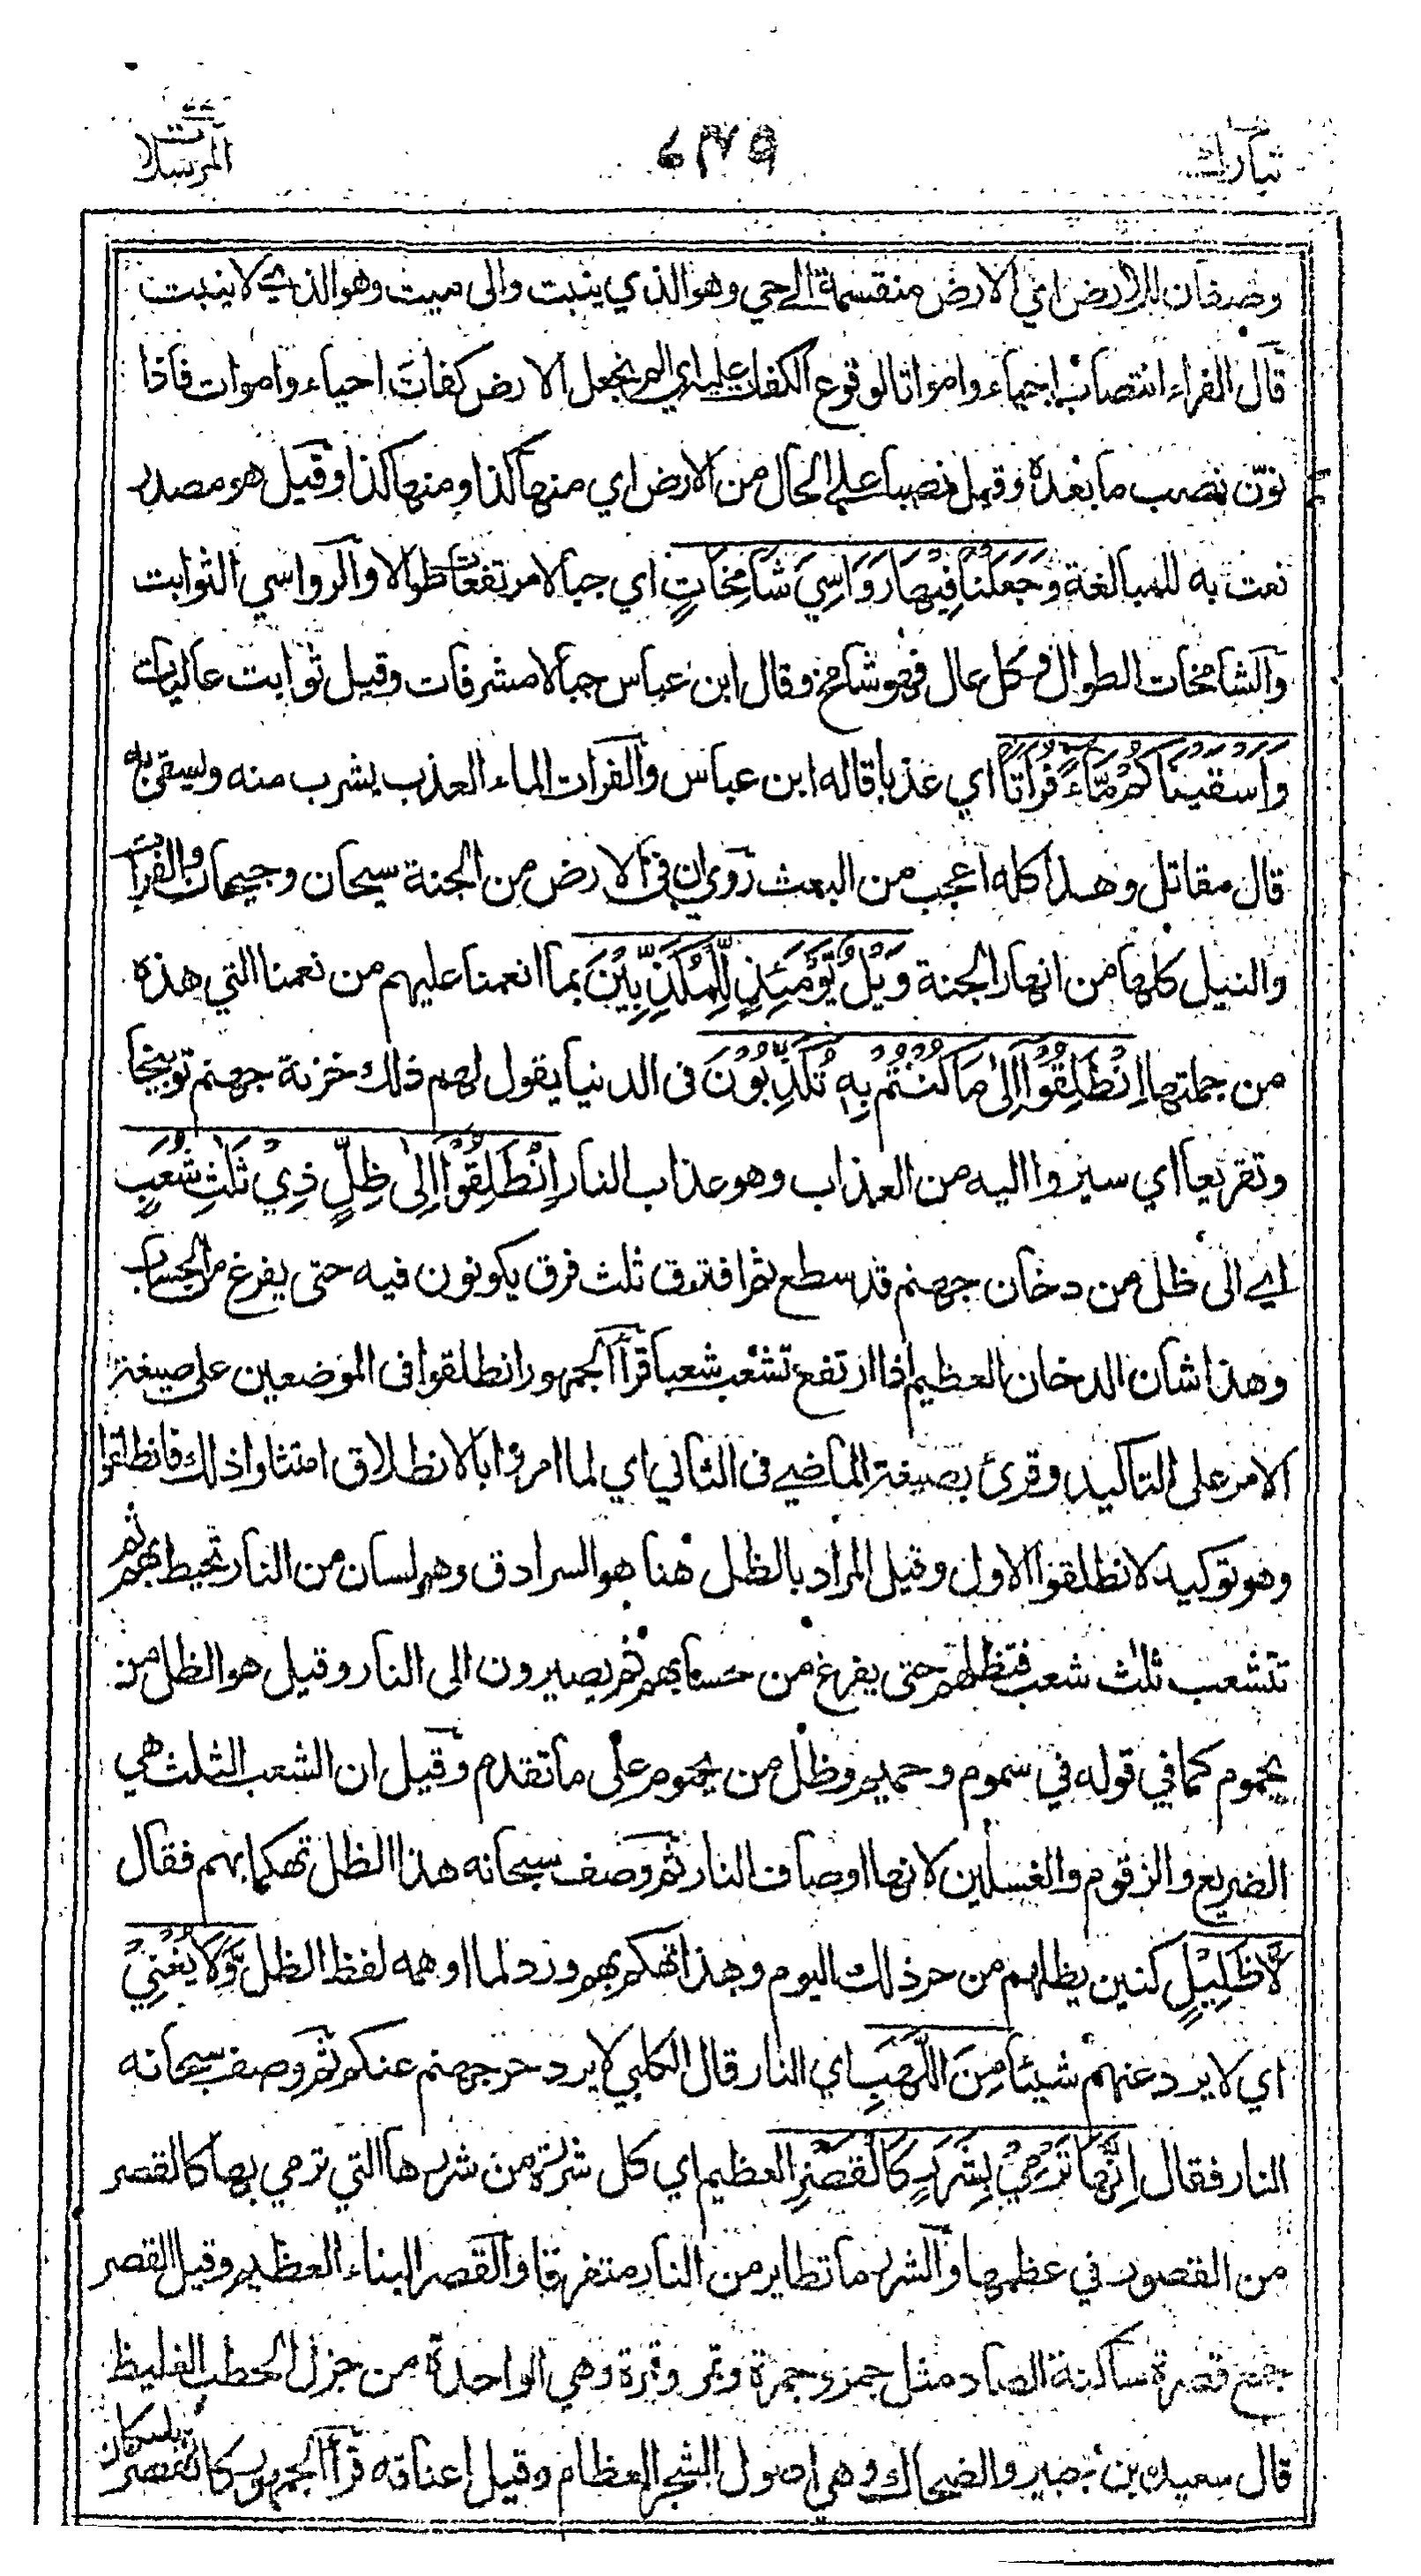 تبارك
٤٣٩
المرسلات
وصفان للارض اي الارض منقسمة الى حي وهو الذي ينبت والى ميت وهو الذي لا ينبت
قال الفراء انتصاب احياء وامواتا لوقوع الكفات عليه اي الم نجعل الارض كفات احياء واموات فاذا
نون نصب ما بعده وقيل نصبا على الحال من الارض اي منها كذا ومنها كذا وقيل هو مصدر
نعت به للمبالغة وَجَعَلْنَا فِيْهَا رَوَاسِيَ شَامِخَاتٍ اي جبالا مرتفعات طوالا والرواسي الثوابت
والشامخات الطوال وكل عال فهو شامخ وقال ابن عباس جبالا مشرفات وقيل ثوابت عاليات
وَاَسْقَيْنَاكُمْ مَّآءً فُرَاتًا اي عذبا قاله ابن عباس والفرات الماء العذب يشرب منه ويسقى به
قال مقاتل وهذا كله اعجب من البعث روي ان في الارض من الجنة سيحان وجيحان والفرات
والنيل كلها من انهار الجنة وَيْلٌ يَّوْمَئِذٍ لِّلْمُكَذِّبِيْنَ بما انعمنا عليهم من نعمنا التي هذه
من جملتها اِنْطَلِقُوْا اِلٰى مَا كُنْتُمْ بِهٖ تُكَذِّبُوْنَ في الدنيا يقول لهم ذلك خزنة جهنم توبيخا
وتقريعا اي سيروا اليه من العذاب وهو عذاب النار اِنْطَلِقُوْا اِلٰى ظِلٍّ ذِيْ ثَلٰثِ شُعَبٍ
اي الى ظل من دخان جهنم قد سطع ثم افترق ثلث فرق يكونون فيه حتى يفرغ من الحساب
وهذا شان الدخان العظيم اذا ارتفع تشعب شعبا قرأ الجمهور انطلقوا في الموضعين على صيغة
الامر على التاكيد وقرئ بصيغة الماضي في الثاني اي لما امروا بالانطلاق امتثلوا ذلك فانطلقوا
وهو توكيد لانطلقوا الاول وقيل المراد بالظل هنا هو السرادق وهو لسان من النار تحيط بهم ثم
تتشعب ثلث شعب فتظلهم حتى يفرغ من حسابهم ثم يصيرون الى النار وقيل هو الظل من
يحموم كما في قوله في سموم وحميم وظل من يحموم على ما تقدم وقيل ان الشعب الثلث هي
الضريع والزقوم والغسلين لانها اوصاف النار ثم وصف سبحانه هذا الظل تهكما بهم فقال
لَّا ظَلِيْلٍ كنين يظلهم من حر ذلك اليوم وهذا تهكم بهم ورد لما اوهمه لفظ الظل وَّلَا يُغْنِيْ
اي لا يرد عنهم شيئا مِنَ اللَّهَبِ اي النار قال الكلبي لا يرد حر جهنم عنكم ثم وصف سبحانه
النار فقال اِنَّهَا تَرْمِيْ بِشَرَرٍ كَالْقَصْرِ العظيم اي كل شررة من شررها التي ترمي بها كالقصر
من القصور في عظمها والشرر ما تطاير من النار متفرقا والقصر البناء العظيم وقيل القصر
جمع قصرة ساكنة الصاد مثل جمر وجمرة وتمر وتمرة وهي الواحدة من جزل الحطب الغليظ
قال سعيد بن جبير والضحاك وهي اصول الشجر العظام وقيل اعناقه قرأ الجمهور كالقصر باسكان